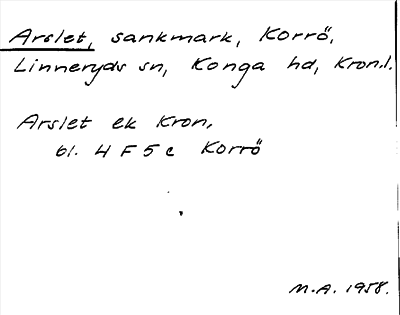 Arslet, sankmark, Korrö,
Linneryds sn, Konga hd, Kron.l.
Arslet ek Kron.
bl. 4 F 5 c Korrö
M.A. 1958.